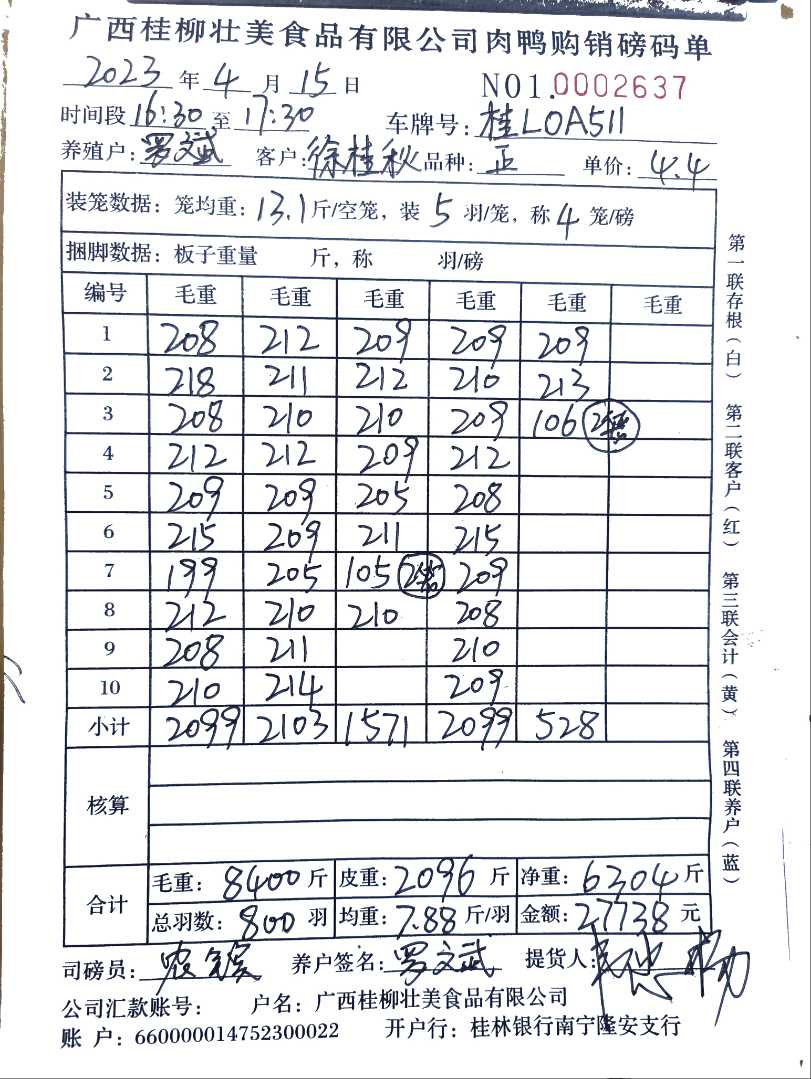 广西桂柳壮美食品有限公司肉鸭购销磅码单
2023 年 4 月 15 日 NO1.0002637
时间段 16:30 至 17:30 车牌号: 桂L0A511
养殖户: 罗文斌 客户: 徐桂秋 品种: 正 单价: 4.4
装笼数据: 笼均重: 13.1 斤/空笼, 装 5 羽/笼, 称 4 笼/磅
捆脚数据: 板子重量 斤, 称 羽/磅
编号 毛重 毛重 毛重 毛重 毛重 毛重
1 208 212 209 209 209
2 218 211 212 210 213
3 208 210 210 209 106 2
4 212 212 209 212
5 209 209 205 208
6 215 209 211 215
7 199 205 105 2 209
8 212 210 210 208
9 208 211 210
10 210 214 209
小计 2099 2103 1571 2099 528
核算
合计 毛重: 8400 斤 皮重: 2096 斤 净重: 6304 斤
总羽数: 800 羽 均重: 7.88 斤/羽 金额: 27738 元
司磅员: 养户签名: 罗文斌 提货人:
公司汇款账号: 户名: 广西桂柳壮美食品有限公司
账 户: 660000014752300022 开户行: 桂林银行南宁隆安支行
第一联存根(白) 第二联客户(红) 第三联会计(黄) 第四联养户(蓝)